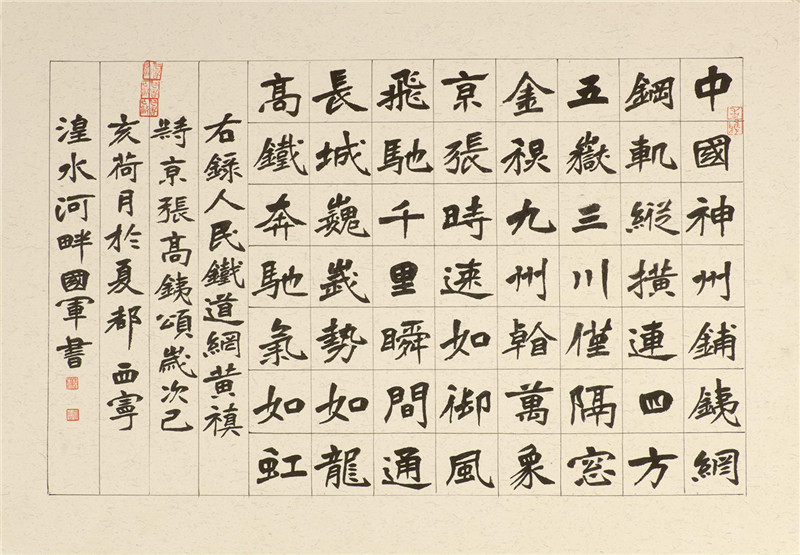 中國神州鋪銕網
鋼軌縱横連四方
五嶽三川僅隔窓
金九州萬象
京張時速如御風
飛馳千里瞬間通
長城巍峩勢如龍
高鐵奔馳氣如虹
右錄人民鐵道網黄禛
京張高銕頌嵗次己
亥荷月於夏都西寧
湟水河畔國軍書